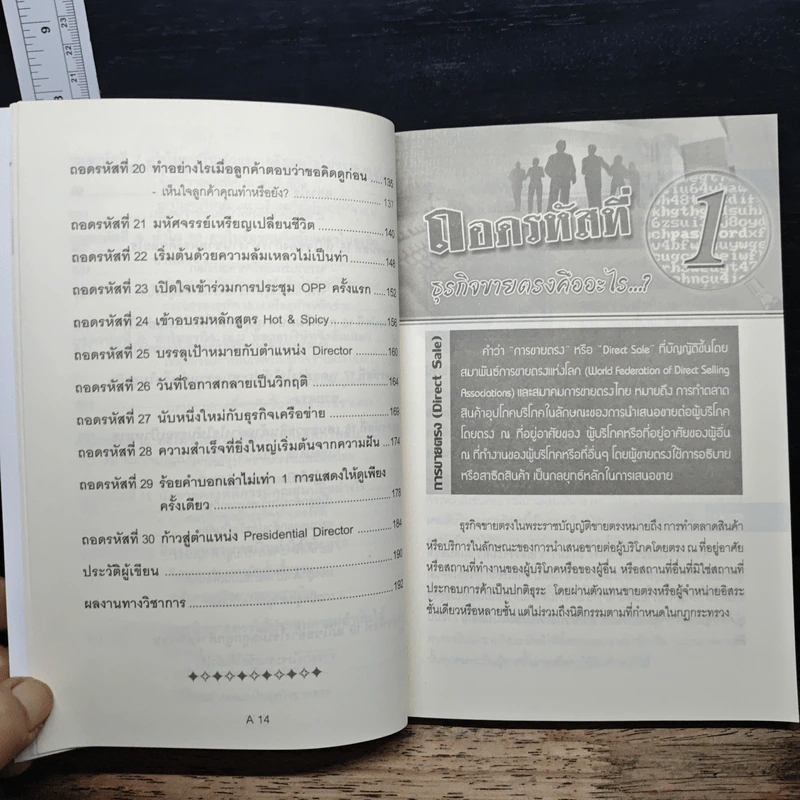 ถอดรหัสที่ 20 ทำอย่างไรเมื่อลูกค้าตอบว่าขอคิดดูก่อน .....135
- เห็นใจลูกค้าคุณทำหรือยัง? ........................137
ถอดรหัสที่ 21 มหัศจรรย์เหรียญเปลี่ยนชีวิต ..................140
ถอดรหัสที่ 22 เริ่มต้นด้วยความล้มเหลวไม่เป็นท่า ...........148
ถอดรหัสที่ 23 เปิดใจเข้าร่วมการประชุม OPP ครั้งแรก ....152
ถอดรหัสที่ 24 เข้าอบรมหลักสูตร Hot & Spicy..............156
ถอดรหัสที่ 25 บรรลุเป้าหมายกับตำแหน่ง Director .........160
ถอดรหัสที่ 26 วันที่โอกาสกลายเป็นวิกฤติ ...................164
ถอดรหัสที่ 27 นับหนึ่งใหม่กับธุรกิจเครือข่าย .................169
ถอดรหัสที่ 28 ความสำเร็จที่ยิ่งใหญ่เริ่มต้นจากความฝัน ....174
ถอดรหัสที่ 29 ร้อยคำบอกเล่าไม่เท่า 1 การแสดงให้ดูเพียง
ครั้งเดียว ..........................................178
ถอดรหัสที่ 30 ก้าวสู่ตำแหน่ง Presidential Director ........184
ประวัติผู้เขียน ....................................................190
ผลงานทางวิชาการ ...............................................192
A 14
ถอดรหัสที่ 1
ธุรกิจขายตรงคืออะไร...?
การขายตรง (Direct Sale)
คำว่า "การขายตรง" หรือ "Direct Sale" ที่บัญญัติขึ้นโดย
สมาพันธ์การขายตรงแห่งโลก (World Federation of Direct Selling
Associations) และสมาคมการขายตรงไทย หมายถึง การทำตลาด
สินค้าอุปโภคบริโภคในลักษณะของการนำเสนอขายต่อผู้บริโภค
โดยตรง ณ ที่อยู่อาศัยของ ผู้บริโภคหรือที่อยู่อาศัยของผู้อื่น
ณ ที่ทำงานของผู้บริโภคหรือที่อื่นๆ โดยผู้ขายตรงใช้การอธิบาย
หรือสาธิตสินค้า เป็นกลยุทธ์หลักในการเสนอขาย
ธุรกิจขายตรงในพระราชบัญญัติขายตรงหมายถึง การทำตลาดสินค้า
หรือบริการในลักษณะของการนำเสนอขายต่อผู้บริโภคโดยตรง ณ ที่อยู่อาศัย
หรือสถานที่ทำงานของผู้บริโภคหรือของผู้อื่น หรือสถานที่อื่นที่มิใช่สถานที่
ประกอบการค้าเป็นปกติธุระ โดยผ่านตัวแทนขายตรงหรือผู้จำหน่ายอิสระ
ชั้นเดียวหรือหลายชั้น แต่ไม่รวมถึงนิติกรรมตามที่กำหนดในกฎกระทรวง